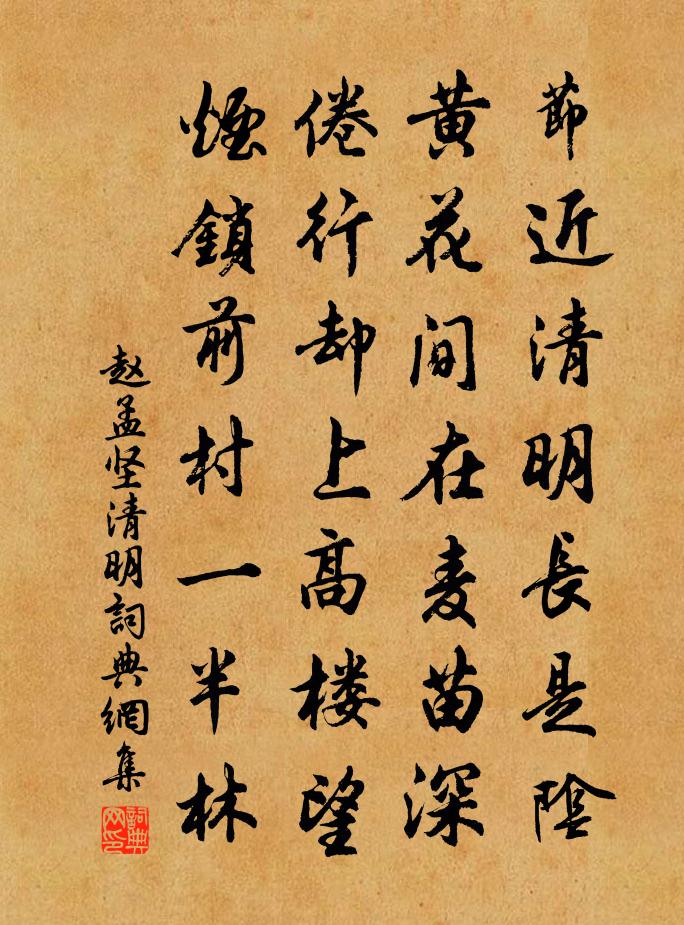 節近清明長是陰
黄花間在麦苗深
倦行却上高楼望
煙鎖前村一半林
赵孟坚清明詞典網集
詞典网印